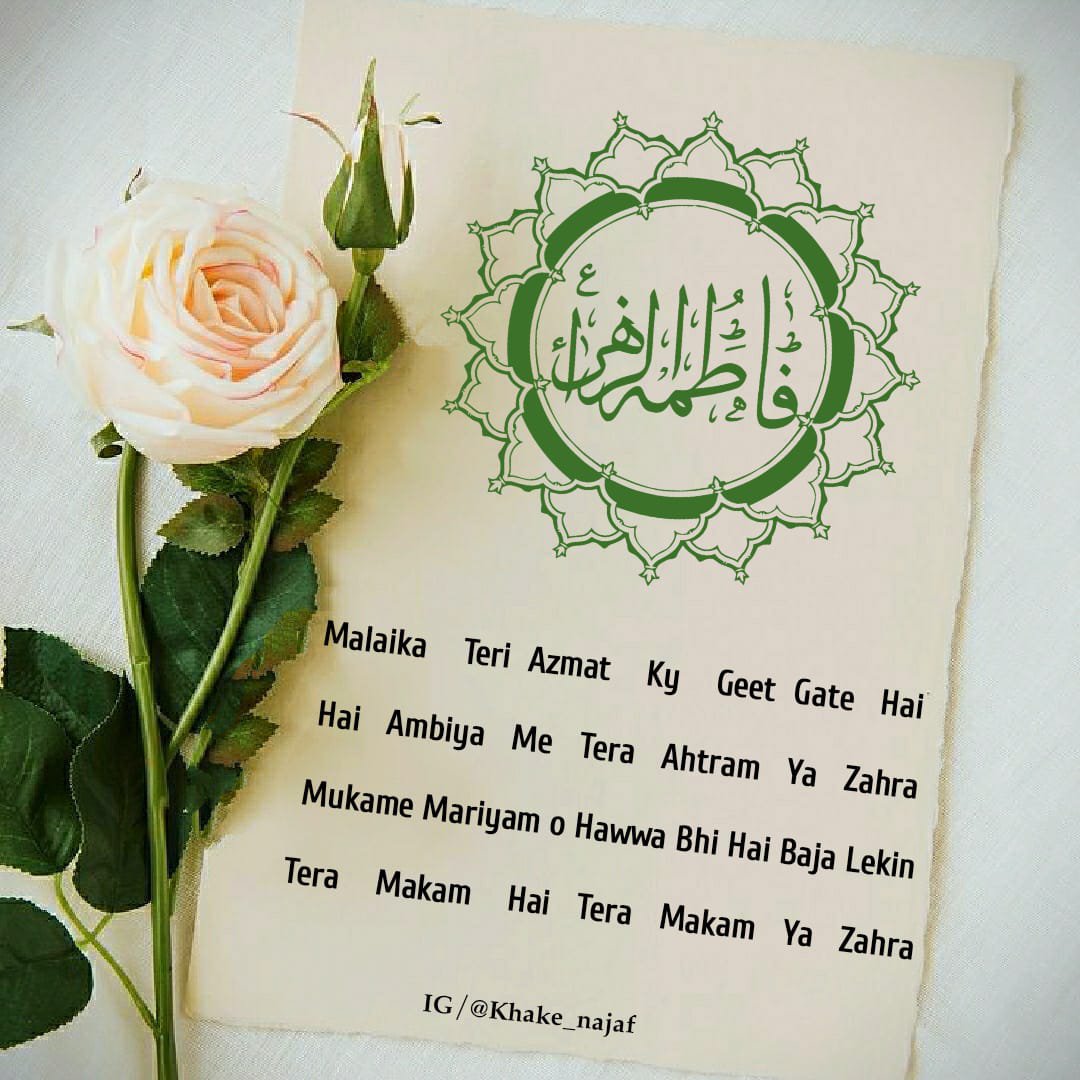 فاطمة الزهراء
Malaika Teri Azmat Ky Geet Gate Hai
Hai Ambiya Me Tera Ahtram Ya Zahra
Mukame Mariyam o Hawwa Bhi Hai Baja Lekin
Tera Makam Hai Tera Makam Ya Zahra
IG/@Khake_najaf